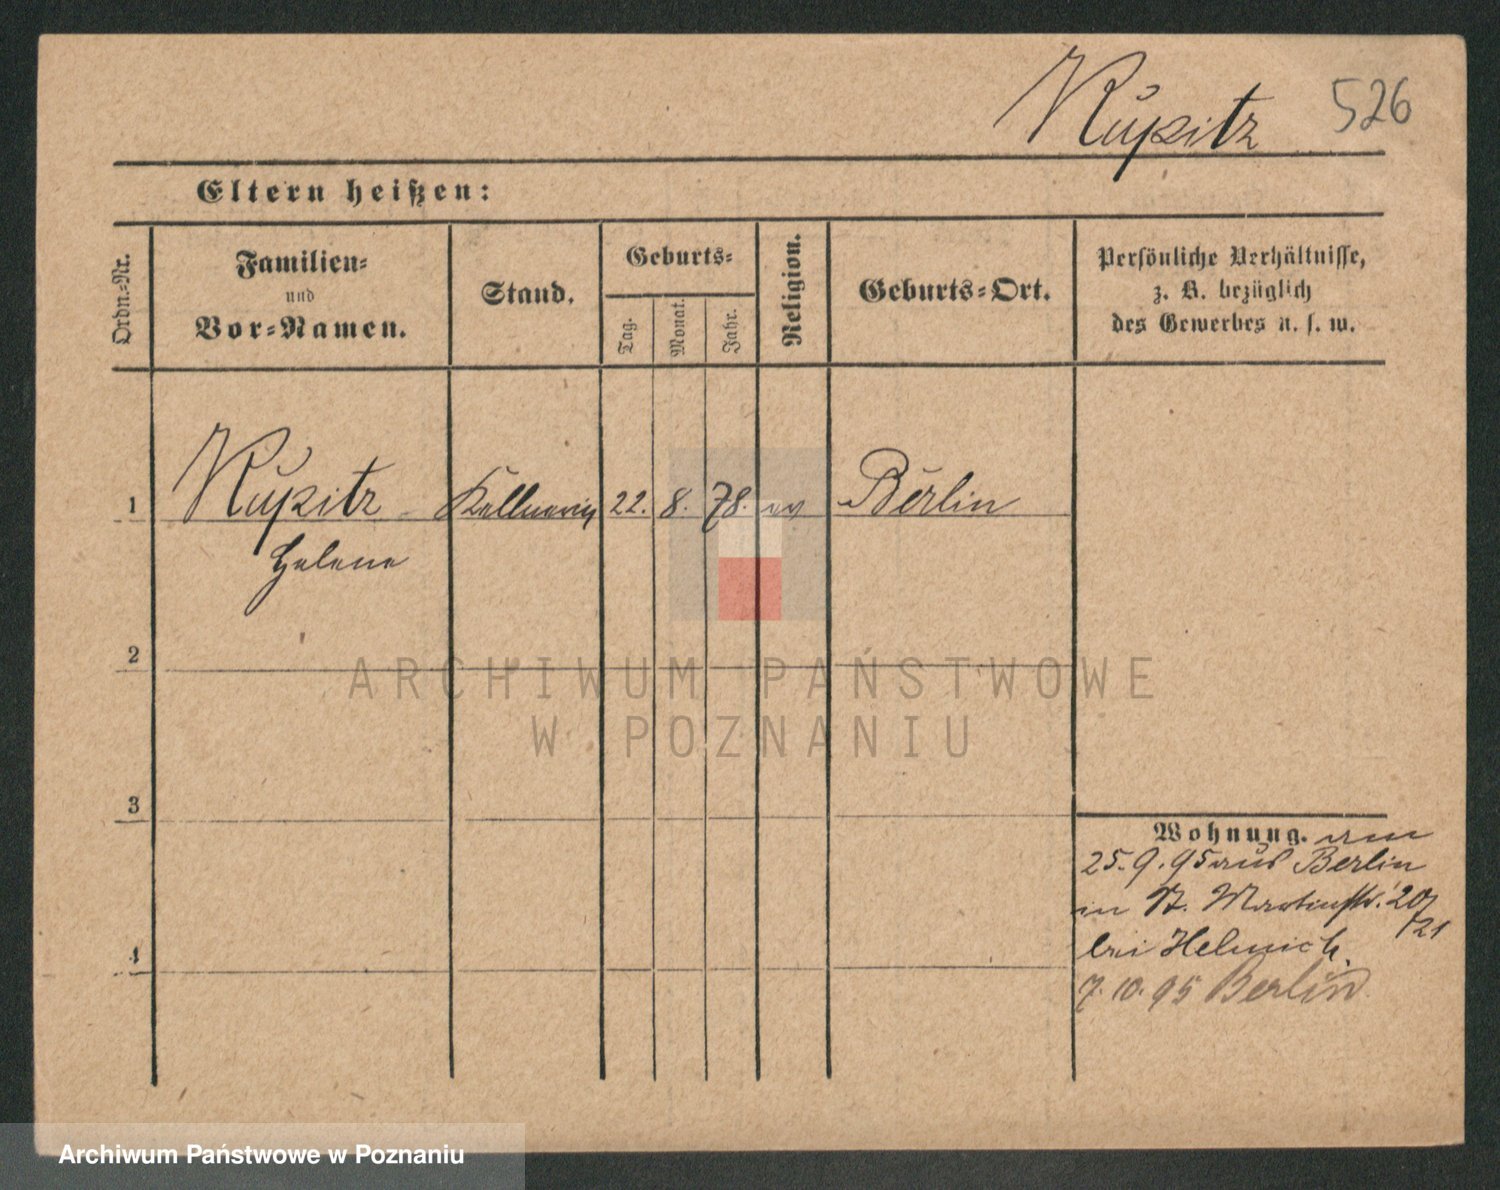 Rupitz 526
Eltern heißen:
Ordn.-Nr.
Familien-
und
Vor-Namen.
Stand.
Geburts-
Tag.
Monat.
Jahr.
Religion.
Geburts-Ort.
Persönliche Verhältnisse,
z. B. bezüglich
des Gewerbes u. s. w.
1 Rupitz Kellnerin 22. 8. 78. ev Berlin
Helene
2
ARCHIWUM PAŃSTWOWE
W POZNANIU
3
Wohnung. am
25.9.95 aus Berlin
in St. Martinstr. 20/21
bei Helmich.
7.10.95 Berlin
4
Archiwum Państwowe w Poznaniu